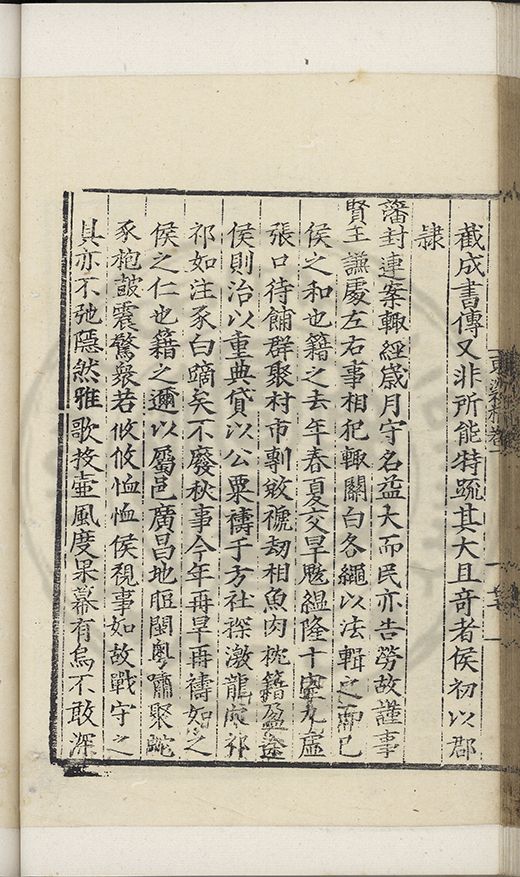 截成書傳又非所能特䟽其大且奇者侯初以郡
隷
藩封連案輙經歲月守名益大而民亦告勞故謹事
賢王謙處左右事相犯輙關白各繩以法輯之而已
侯之和也籍之去年春夏交旱魃緼隆十室九虛
張口待餔群聚村市剽敓禠刼相魚肉枕籍盈途
侯則治以重典貸以公粟禱于方社祲激龍
祁如注豕白蹢矣不廢秋事今年再旱再禱如之
侯之仁也籍之邇以屬邑廣昌地䀜閩粤嘯聚蛇
豕枹皷震驚褎若攸攸恤恤侯視事如故戰守之
具亦不弛隱然雅歌投壷風度果幕有烏不敢深